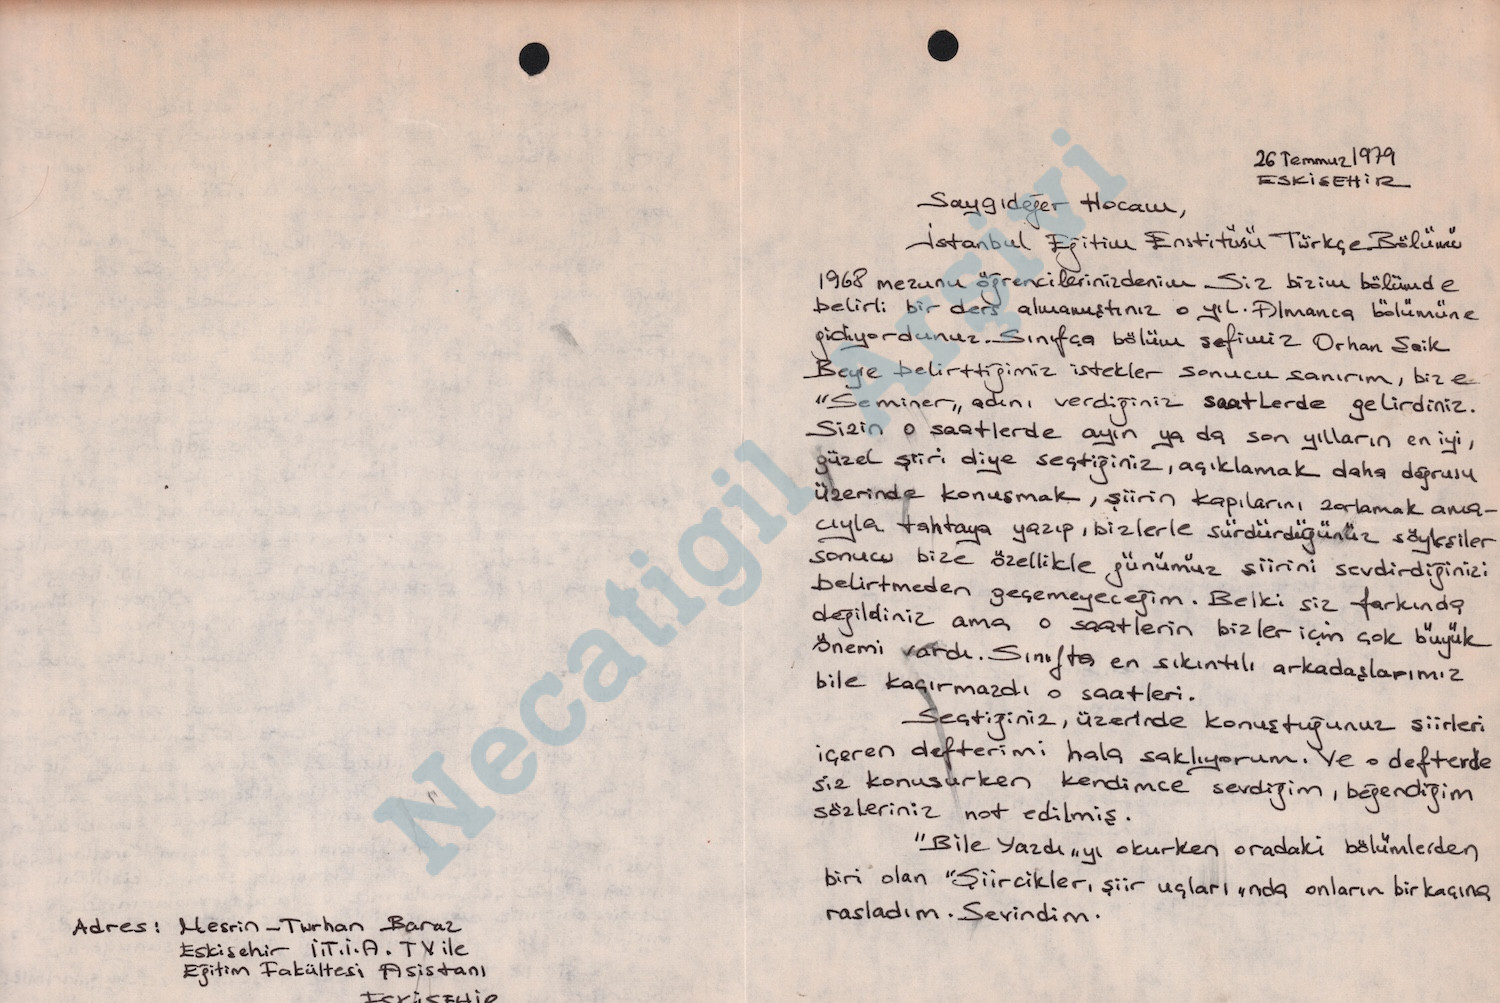 26 Temmuz 1979
ESKİŞEHİR
Saygıdeğer Hocam,
İstanbul Eğitim Enstitüsü Türkçe Bölümü
1968 mezunu öğrencilerinizdenim. Siz bizim bölümde
belirli bir ders almamıştınız o yıl. Almanca bölümüne
gidiyordunuz. Sınıfça bölüm şefimiz Orhan Şaik
Beye belirttiğimiz istekler sonucu sanırım, bize
"Seminer„ adını verdiğiniz saatlerde gelirdiniz.
Sizin o saatlerde ayın ya da son yılların en iyi,
güzel şiiri diye seçtiğiniz, açıklamak daha doğrusu
üzerinde konuşmak, şiirin kapılarını zorlamak ama-
cıyla tahtaya yazıp, bizlerle sürdürdüğünüz söyleşiler
sonucu bize özellikle günümüz şiirini sevdirdiğinizi
belirtmeden geçemeyeceğim. Belki siz farkında
değildiniz ama o saatlerin bizler için çok büyük
önemi vardı. Sınıfta en sıkıntılı arkadaşlarımız
bile kaçırmazdı o saatleri.
Seçtiğiniz, üzerinde konuştuğunuz şiirleri
içeren defterimi hala saklıyorum. Ve o defterde
siz konuşurken kendimce sevdiğim, beğendiğim
sözleriniz not edilmiş.
"Bile Yazdı„yı okurken oradaki bölümlerden
biri olan "Şiircikler, şiir uçları„nda onların birkaçına
rasladım. Sevindim.
Adres: Nesrin-Turhan Baraz
Eskişehir İ.T.İ.A. TV ile
Eğitim Fakültesi Asistanı
ESKİŞEHİR
Necatigil Arşivi